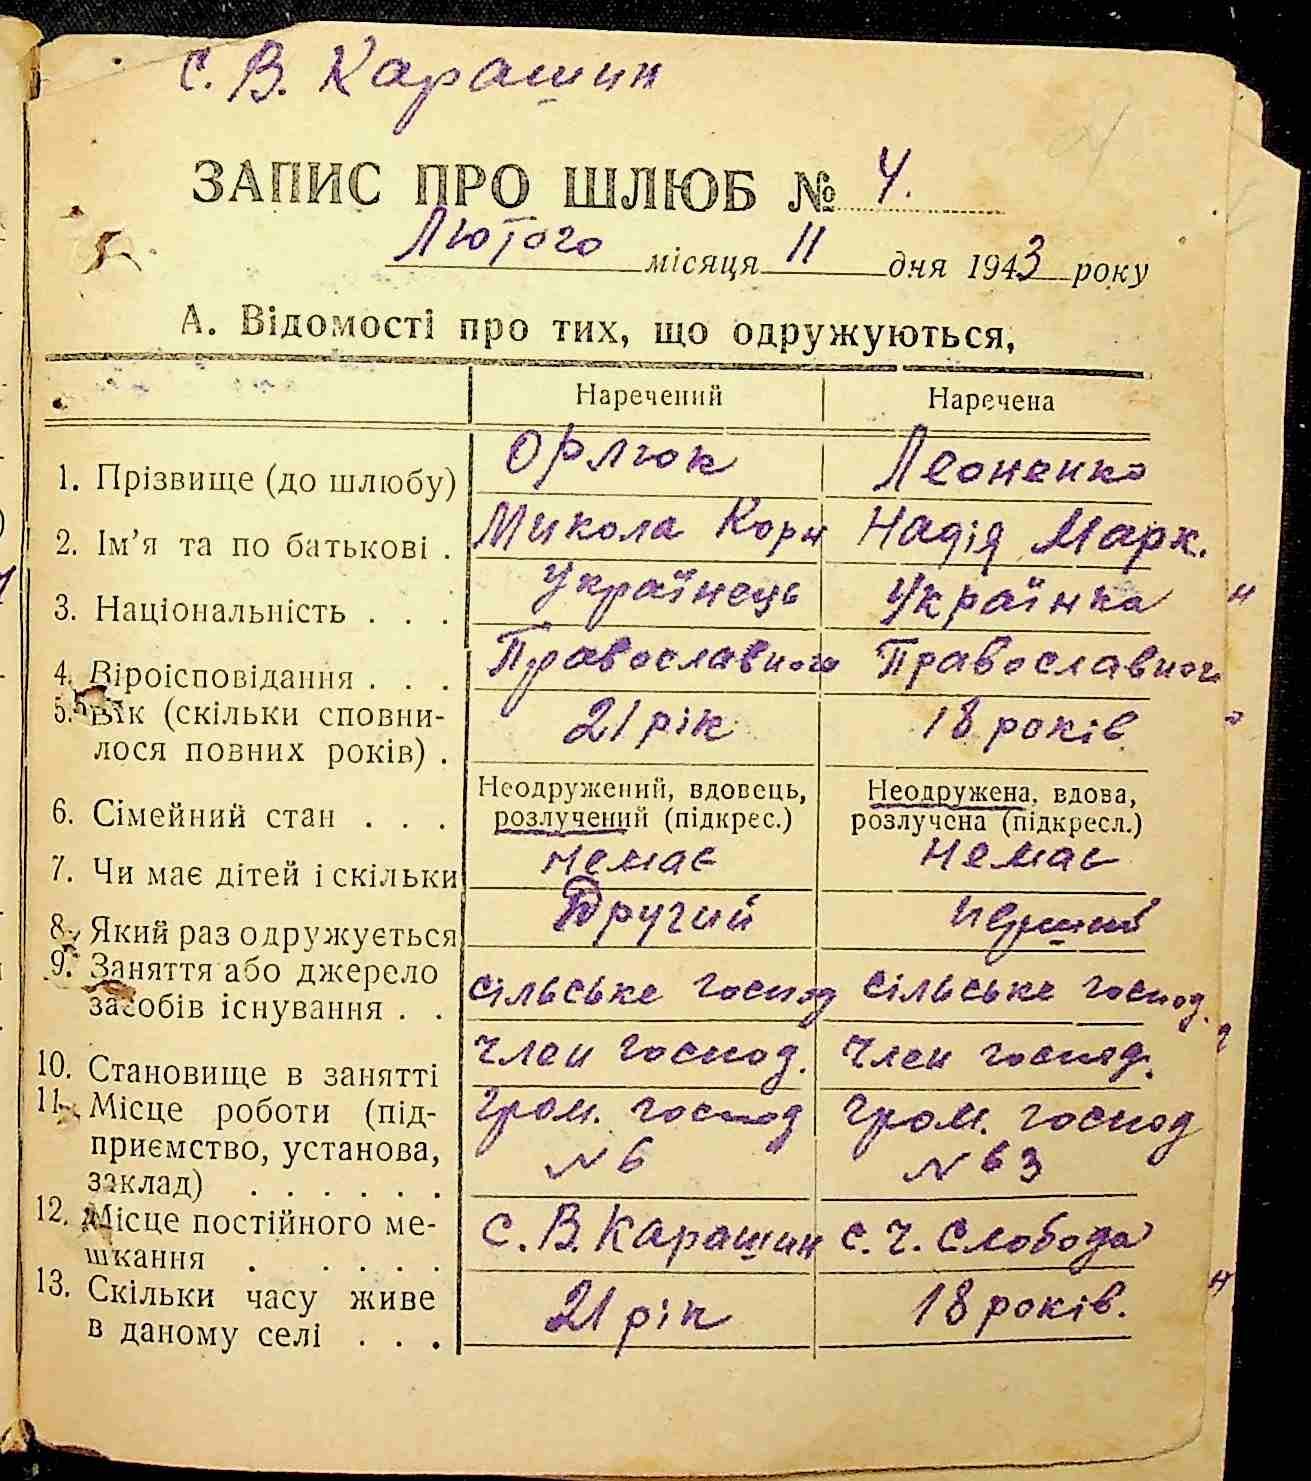 с. В. Карашин
ЗАПИС ПРО ШЛЮБ № 4.
Лютого місяця 11 дня 1943 року
А. Відомості про тих, що одружуються,
Наречений Наречена
1. Прізвище (до шлюбу) Орлюк Леоненко
2. Ім'я та по батькові . Микола Корн Надія Марк.
3. Національність . . . Українець Українка
4. Віроісповідання . . . Православного Православног
5. Вік (скільки сповни-
лося повних років) . 21 рік 18 років
6. Сімейний стан . . . Неодружений, вдовець, Неодружена, вдова,
розлучений (підкрес.) розлучена (підкресл.)
7. Чи має дітей і скільки немає немає
8. Який раз одружується Другий перший
9. Заняття або джерело
засобів існування . . сільське господ сільське господ.
10. Становище в занятті член господ. член господ.
11. Місце роботи (під- гром. господ гром. господ
приємство, установа, № 6 № 63
заклад) . . . . . .
12. Місце постійного ме- с. В. Карашин с. Ч. Слобода
шкання . . . . .
13. Скільки часу живе 21 рік 18 років.
в даному селі . . .